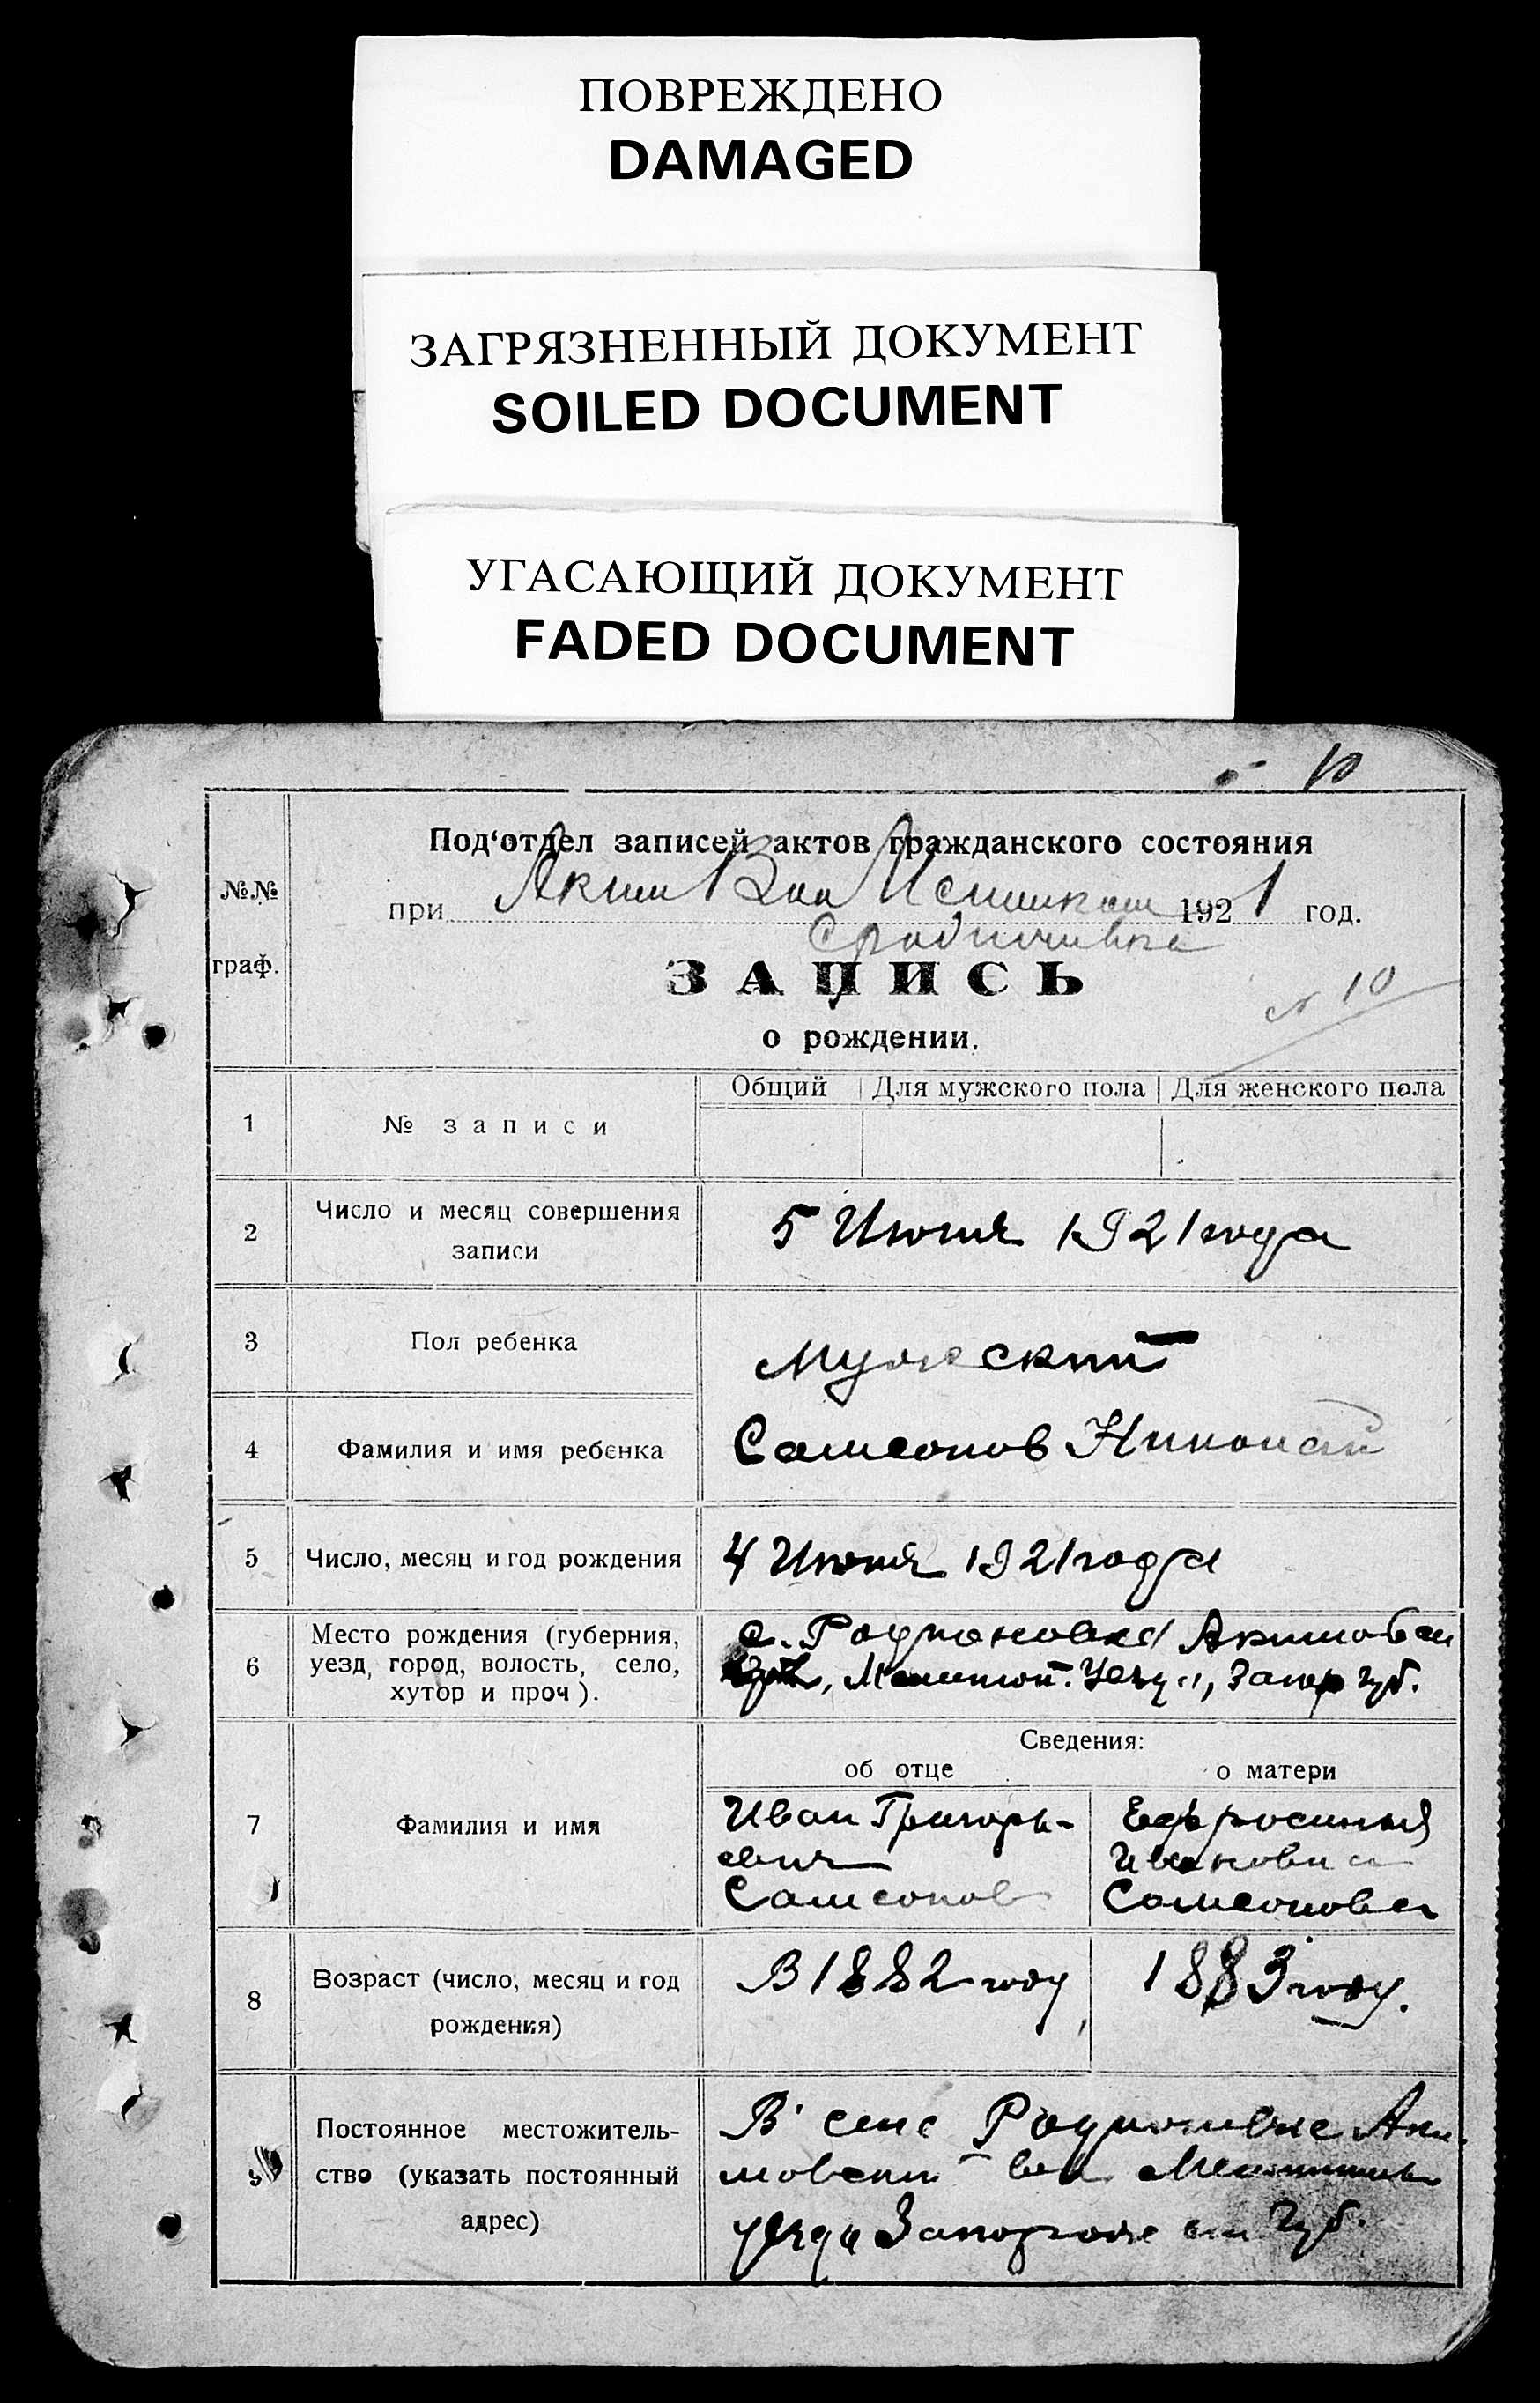 ПОВРЕЖДЕНО
DAMAGED
ЗАГРЯЗНЕННЫЙ ДОКУМЕНТ
SOILED DOCUMENT
УГАСАЮЩИЙ ДОКУМЕНТ
FADED DOCUMENT
10
№№
граф.
Под‘отдел записей актов гражданского состояния
при Аким Вол 1921 год.
ЗАПИСЬ
о рождении.
№ 10
1 № записи Общий Для мужского пола Для женского пола
2 Число и месяц совершения
записи
5 Июня 1921 года
3 Пол ребенка
Мужский
4 Фамилия и имя ребенка
Самсонов Николай
5 Число, месяц и год рождения
4 Июня 1921 года
6 Место рождения (губерния,
уезд, город, волость, село,
хутор и проч).
с. Родионовка Акимовск
Мелитоп. Уезда, Запор губ.
Сведения:
об отце о матери
7 Фамилия и имя
Иван Григорь-
евич
Самсонов
Ефросиния
Ивановна
Самсонова
8 Возраст (число, месяц и год
рождения)
В 1882 году
1883 году.
9 Постоянное местожитель-
ство (указать постоянный
адрес)
В селе Родионовке Аки
мовской вол Мелитопол
уезда Запорожской Губ.